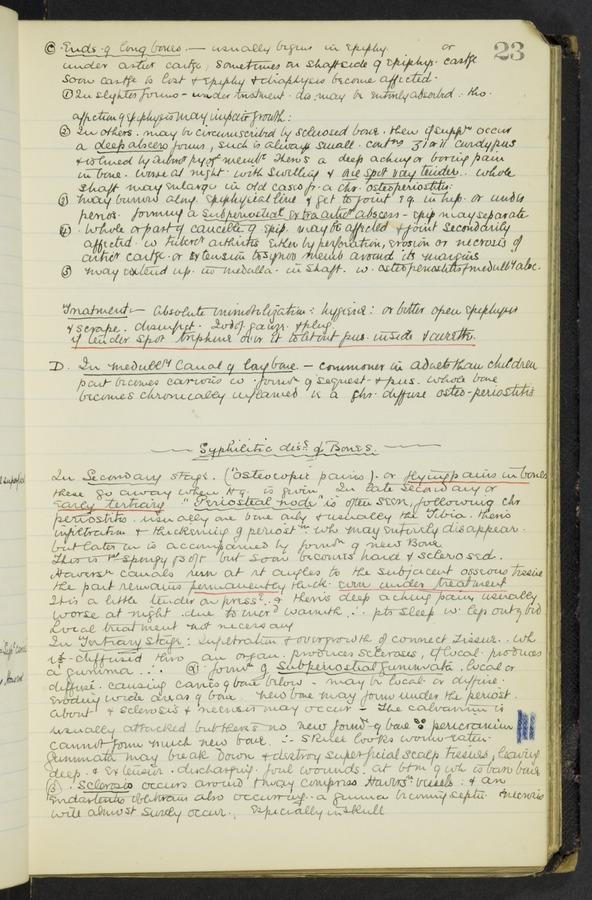 23
C Ends of long bones. — usually begins in Epiphy. or
under artic cartge, sometimes on shaft side of Epiphys. cartge
Soon cartge is lost & Epiphy & diaphysis become affected.
① In slighter forms - under treatment. dis. may be entirely absorbed. tho.
affection of Epiphysis may impair growth:
② In others. may be circumscribed by sclerosed bone. then if suppn occur
a deep abscess forms, such is always small. contng curdy pus
& is lined by membe. There's a deep aching or boring pain
in bone. worse at night. with swelling & one spot very tender. whole
shaft may enlarge in old cases fr. a chr. osteoperiostitis:
③ may burrow along. Epiphyseal line & get to joint eg. in hip. or under
perios. forming a Subperiosteal or extra artic abscess - Epip may separate
④ Whole or part of cancells of Epip. may be affected & joint secondarily
affected. w tuberc arthritis either by perforation, erosion or necrosis of
artic cartge. or Extension to synov memb around its margins
⑤ may extend up. in medulla. in shaft. w. osteoperiostitis & medully absc.
Treatment - Absolute immobilization: hygiene: or better open Epiphysis
& scrape. disinfect. Iodof. gauze. & plug.
if tender spot trephine over it to let out pus. inside & curette.
D. In medully Canal of long bone. - commoner in adults than children
part becomes carious w. formn of sequest. & pus. whole bone
becomes chronically inflamed is a chr. diffuse osteo-periostitis
Syphilitic diss. of Bones.
In Secondary stage. ("osteocopic pains). or flying pains in bones
these go away when Hg. is given. In late Secondary or
Early tertiary "Periosteal node" is often seen, following chr
periostitis. usually one bone only & usually the Tibia. there's
infiltration & thickening of periostm wh may entirely disappear.
but later on is accompanied by formn of new Bone
This is 1st spongy & soft but soon becomes hard & sclerosed.
Haversn canals run at rt angles to the subjacent osseous tissue
the part remains permanently thick. even under treatment
It is a little tender on press. & there's deep aching pain, usually
worse at night due to incrd warmth ∴ pts sleep w. legs out of bed
Local treatment not necessary
In Tertiary stage: Infiltration & overgrowth of connect tissue. wh
if diffused thro an organ. produces scleroses, if local produces
a gumma. ∴ formn of Subperiosteal gummata. local or
diffuse. causing caries of bone below - may be local or diffuse.
Eroding wide areas of bone. New bone may form under the periost.
about & sclerosis & necrosis may occur - The calvarium is
usually attacked but there's no new formn of bone ∵ pericranium
cannot form much new bone. ∴ skull looks worm eaten.
Gummata may break down & destroy superficial scalp tissues, leaving
deep. & Extensive. discharging. foul wounds. at btm of wh is bare bone
Sclerosis occurs around & may compress Haversn vessels: & an
Endarteritis obliterans also occurring. a gumma becoming septic. necrosis
will almost surely occur, Especially in skull